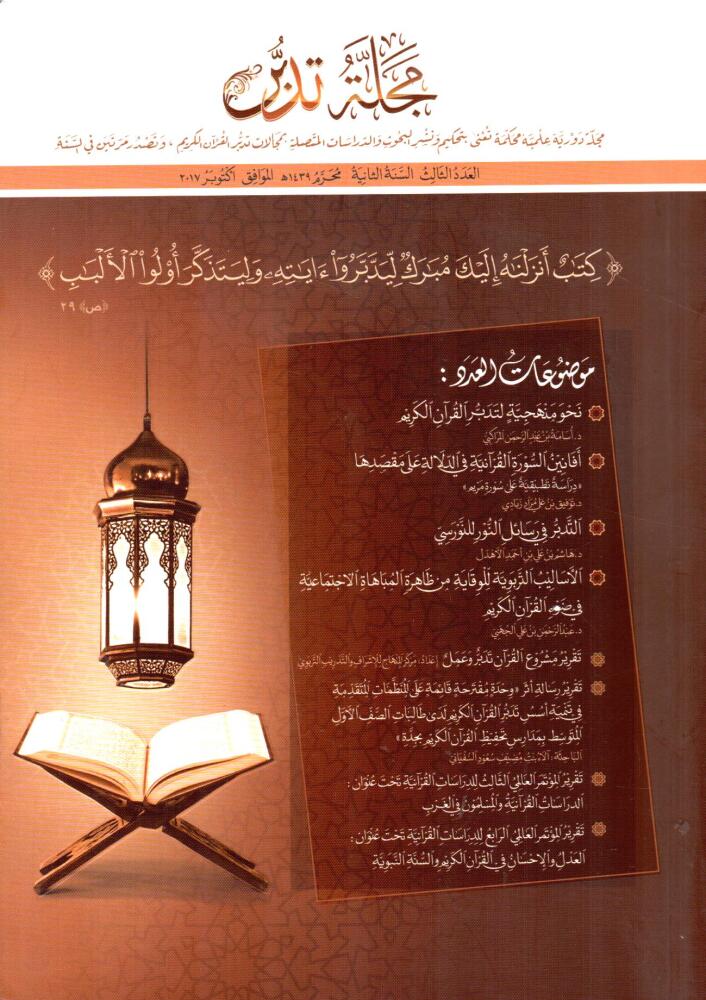 مجلة تدبر
مجلة دورية علمية محكمة تعنى بتحكيم ونشر البحوث والدراسات المتصلة بمجالات تدبر القرآن الكريم ، وتصدر مرتين في السنة
العدد الثالث السنة الثانية محرم ١٤٣٩هـ الموافق أكتوبر ٢٠١٧
﴿ كِتَٰبٌ أَنزَلْنَٰهُ إِلَيْكَ مُبَٰرَكٌ لِّيَدَّبَّرُوٓا۟ ءَايَٰتِهِۦ وَلِيَتَذَكَّرَ أُو۟لُوا۟ ٱلْأَلْبَٰبِ ﴾
«ص» ٢٩
موضوعات العدد :
نحو منهجية لتدبر القرآن الكريم
د. أسامة بن عبد الرحمن المراكبي
أفانين السورة القرآنية في الدلالة على مقصدها
«دراسة تطبيقية على سورة مريم»
د. توفيق بن علي مراد زبادي
التدبر في رسائل النور للنورسي
د. هاشم بن علي بن أحمد الأهدل
الأساليب التربوية للوقاية من ظاهرة المباهاة الاجتماعية
في ضوء القرآن الكريم
د. عبدالرحمن بن علي الجهني
تقرير مشروع القرآن تدبر وعمل إعداد: مركز المنهاج للإشراف والتدريب التربوي
تقرير رسالة أثر «وحدة مقترحة قائمة على المنظمات المتقدمة
في تنمية أسس تدبر القرآن الكريم لدى طالبات الصف الأول
المتوسط بمدارس تحفيظ القرآن الكريم بجدة»
الباحثة: مصيلف سعود السفياني
تقرير المؤتمر العالمي الثالث للدراسات القرآنية تحت عنوان :
الدراسات القرآنية والمسلمون في الغرب
تقرير المؤتمر العالمي الرابع للدراسات القرآنية تحت عنوان :
العدل والإحسان في القرآن الكريم والسنة النبوية